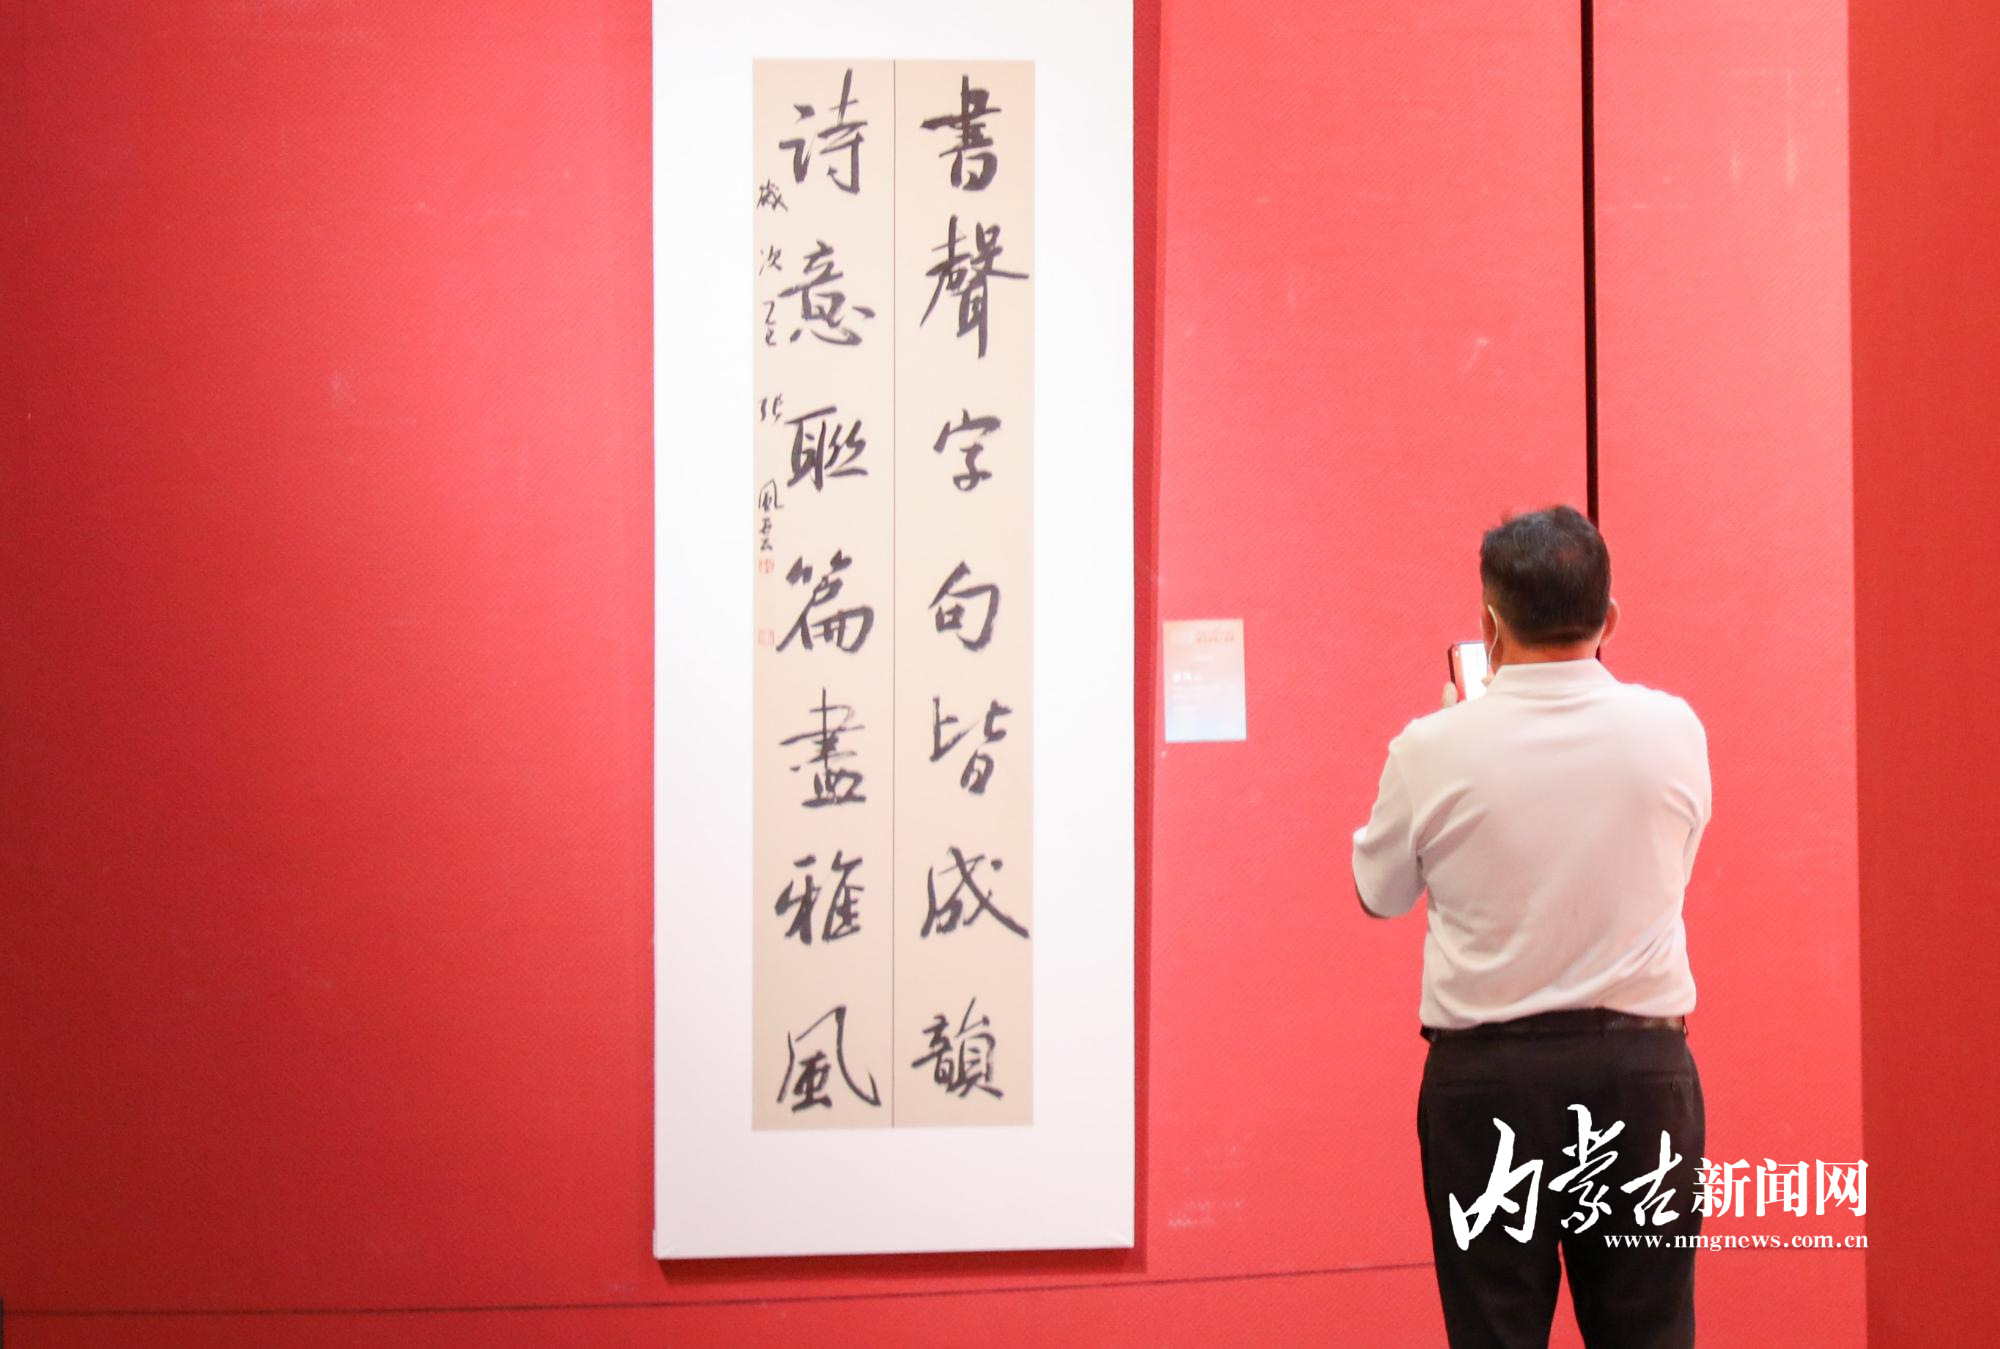 書聲字句皆成韻
詩意聯篇盡雅風
歲次乙巳 張風雲
内蒙古新闻网
www.nmgnews.com.cn